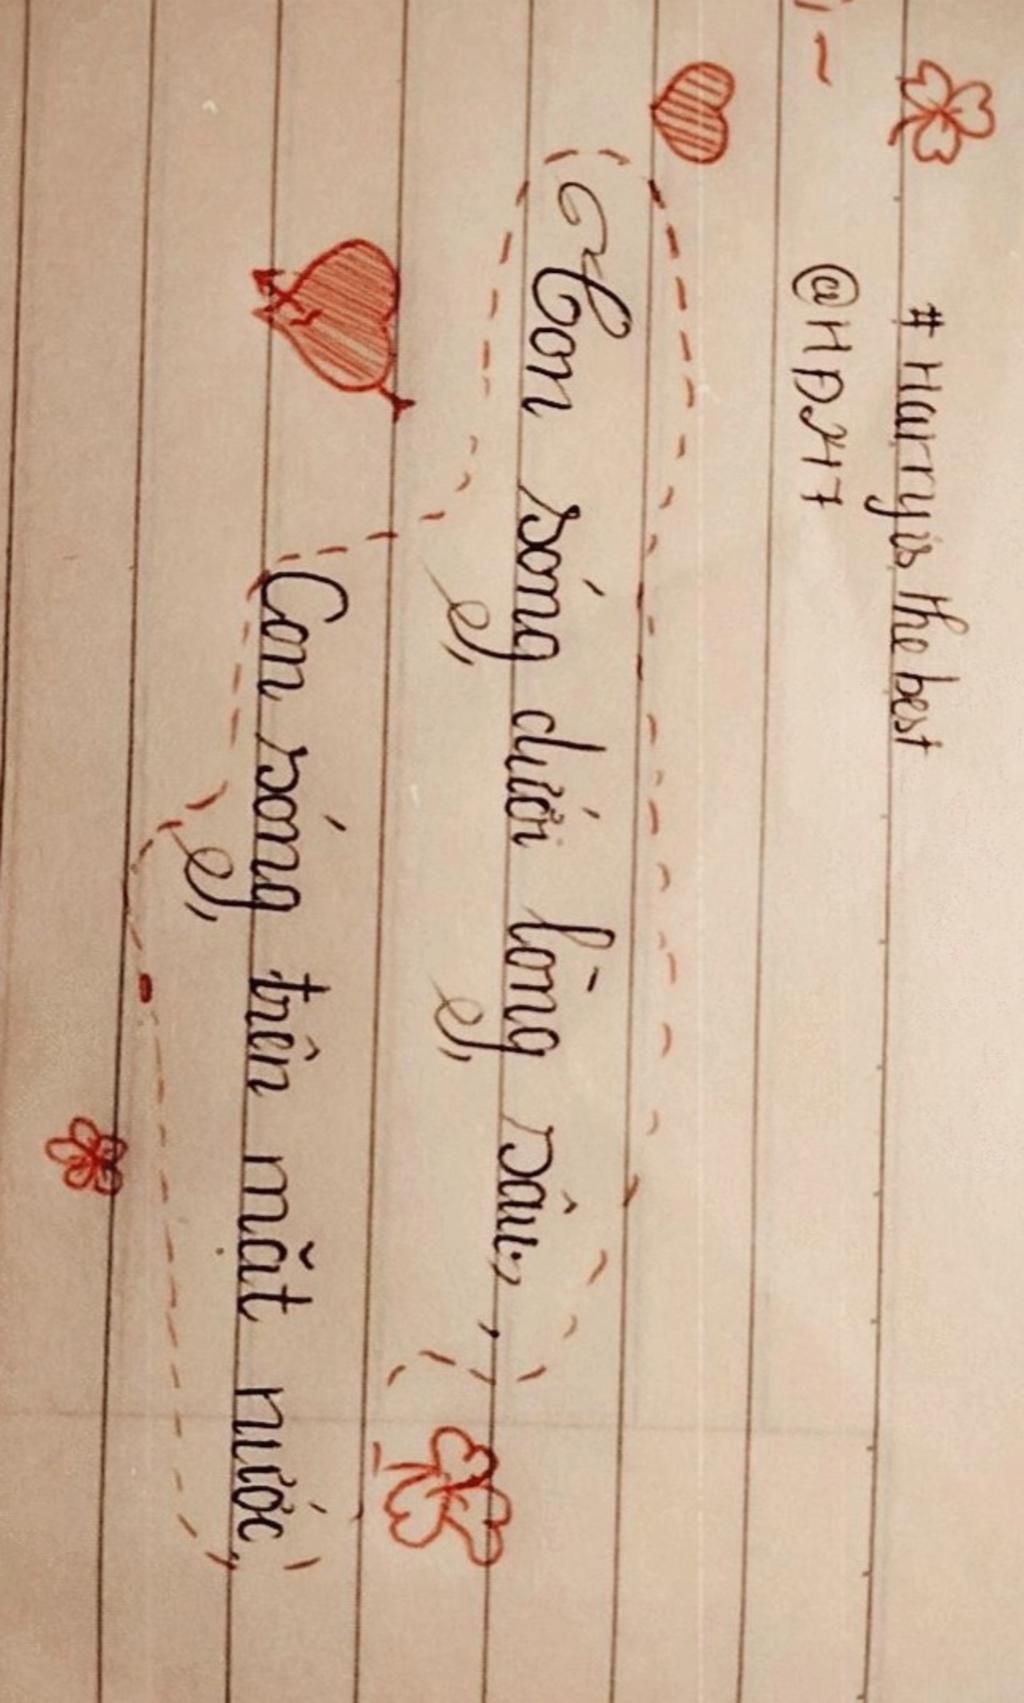 # Harry is the best
@HDH7
Con sóng dưới lòng sâu,,,
Con sóng trên mặt nước,